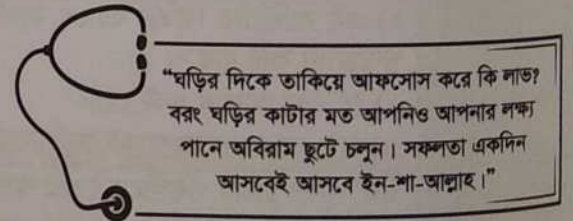 “ঘড়ির দিকে তাকিয়ে আফসোস করে কি লাভ?
বরং ঘড়ির কাটার মত আপনিও আপনার লক্ষ্য
পানে অবিরাম ছুটে চলুন। সফলতা একদিন
আসবেই আসবে ইন-শা-আল্লাহ।”